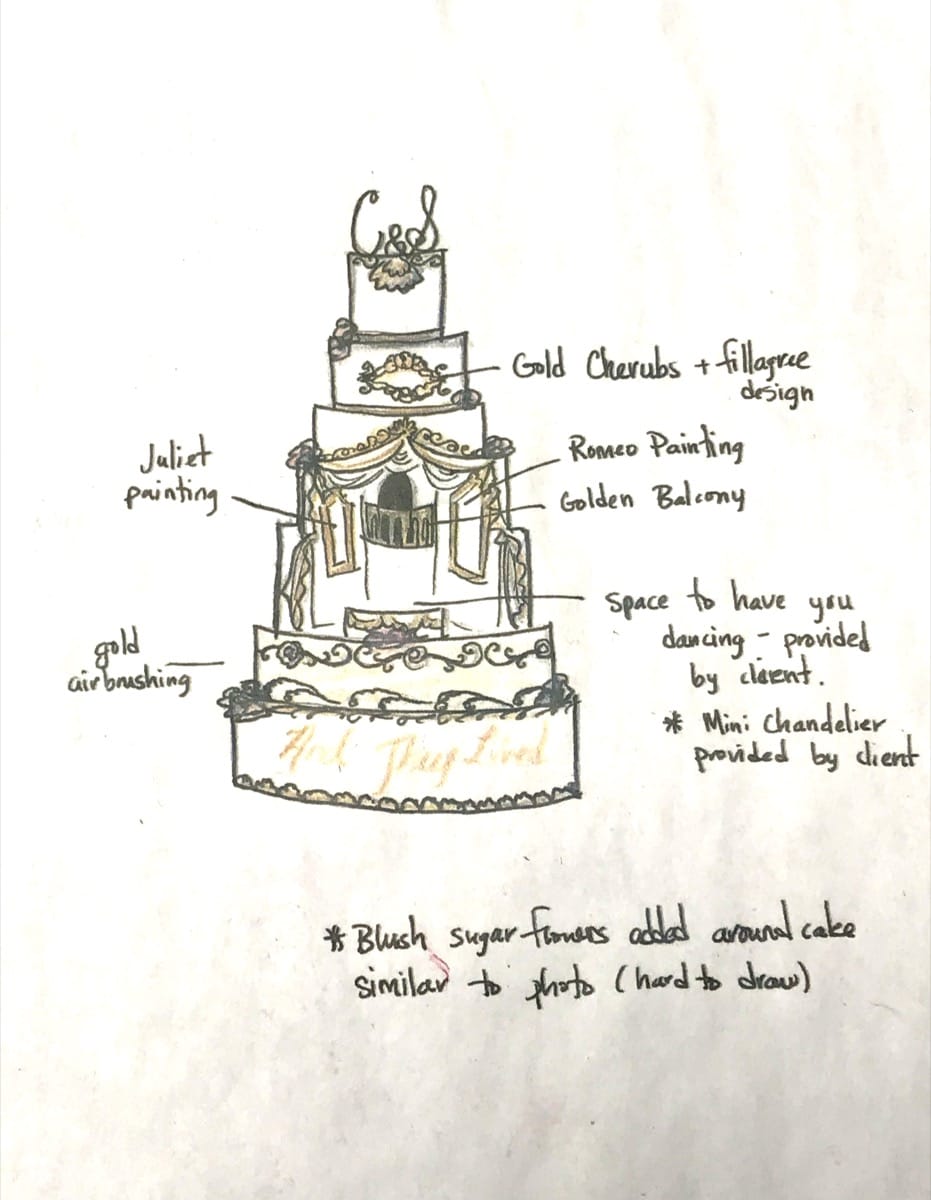 C&S
Gold Cherubs + fillagree
design
Juliet
painting
Romeo Painting
Golden Balcony
space to have you
dancing - provided
by client.
* Mini Chandelier
provided by client
gold
airbrushing
And They Lived
* Blush sugar flowers added around cake
similar to photo (hard to draw)